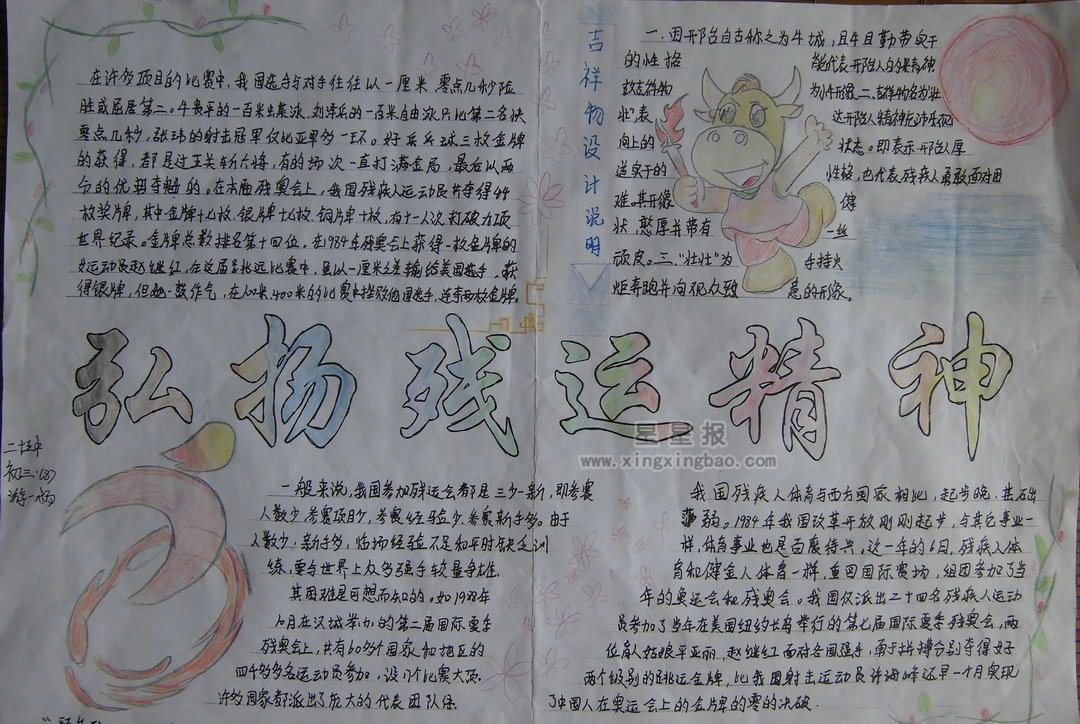 在许多项目的比赛中,我国选手与对手往往以一厘米、零点几秒险
胜或屈居第二。
零点几秒,张玮的射击冠军仅比亚军多一环。好乒乓球三枚金牌
的获得,都是过五关斩六将,有的场次一直打满金局,最后以两
分的优势夺魁的。在本届残奥会上,我国残疾人运动员共夺得44
枚奖牌,其中金牌十七枚,银牌十七枚,铜牌十枚,有十一人次打破九项
世界纪录。金牌总数排名第十四位。在1984年残奥会上获得一枚金牌的
女运动员赵继红,在这届跳远比赛中,虽以一厘米之差输给美国选手,获
得银牌,但她一鼓作气,在
吉祥物设计说明
一.因开阳自古称之为牛城,且牛且勤劳实干
的性格
能代表开阳人的
故吉祥物
为小牛形象.二.吉祥物名为壮
壮"表
达开阳人精神
向上的
状态。即表示开阳人厚
道实干的
性格,也代表残疾人勇敢面对困
难。其形像
健
状、憨厚并带有
一丝
顽皮。三."壮壮"为
手持火
炬奔跑并向观众致
意的形象。
弘扬残运精神
星星报
www.xingxingbao.com
初三·(8)
一般来说,我国参加残运会都是三少一新,即参赛
人数少、参赛项目少、参赛经验少、参赛新手多。由于
人数少、新手多,临场经验不足和平时缺乏训
练,要与世界上众多强手较量争雄,
其困难是可想而知的。如1988年
10月在汉城举办的第二届国际夏季
残奥会上,共有60多个国家和地区的
四千多多名运动员参加,设17个比赛大项.
许多国家都派出了庞大的代表团队伍.
我国残疾人体育与西方国家相比,起步晚,基础
薄弱。1984年我国改革开放刚刚起步,与其它事业一
样,体育事业也是百废待兴,这一年的6月,残疾人体
育和健全人体育一样,重回国际赛场,组团参加了当
年的奥运会和残奥会。我国仅派出二十四名残疾人运动
员参加了当年在美国纽约长岛举行的第七届国际夏季残奥会,两
位盲人姑娘平亚丽、赵继红面对各国强手,勇于拼搏分别夺得女子
两个级别的跳远金牌,比我国射击运动员许海峰还早一个月实现
了中国人在奥运会上的金牌的零的决破.